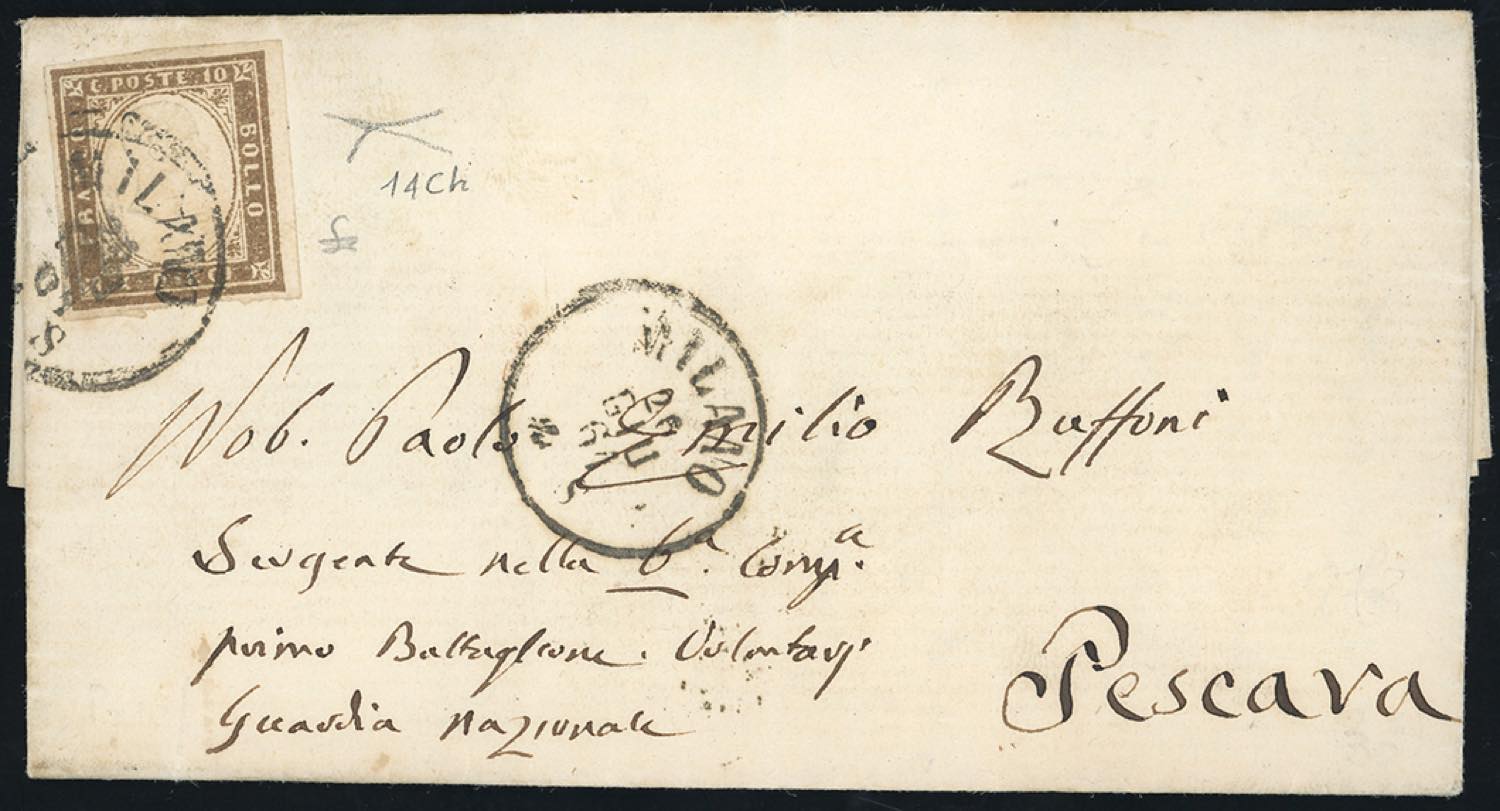 C. POSTE 10
FRANCO
BOLLO
MILANO
14Ch
MILANO
GIU
61
Nob. Paolo Emilio Buffoni
Sergente nella 6.ª Comp.ª
primo Battaglione Volontarj
Guardia nazionale
Pescara